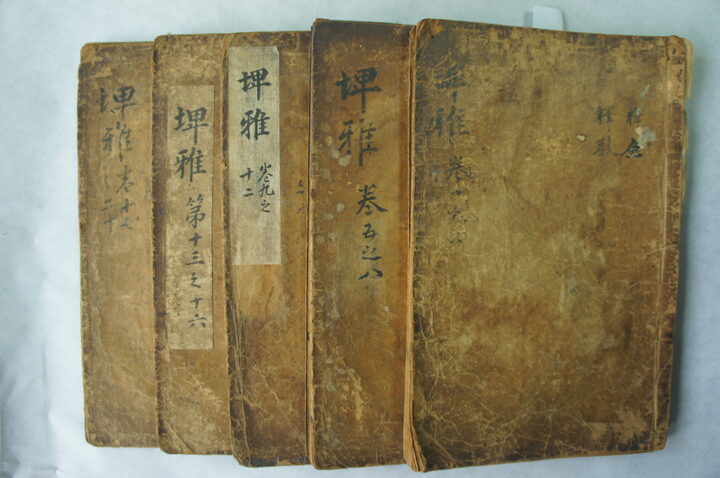 釋魚
釋獸
埤雅卷一之四
埤雅
卷五之八
埤雅
卷九之
十二
埤雅
第十三之十六
埤雅卷十七
之二十